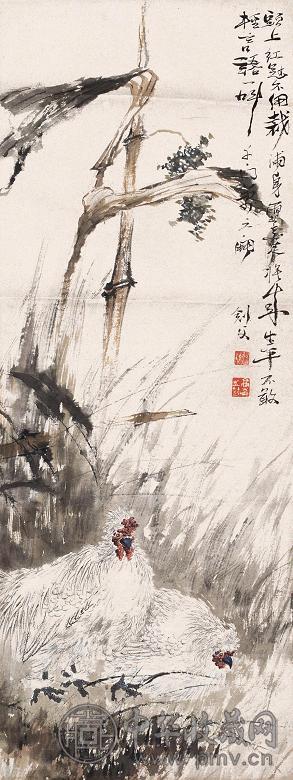 頭上紅冠不用裁滿身雪白走將來生平不敢
輕言語一叫千門萬戶開
劍父
中华收藏网